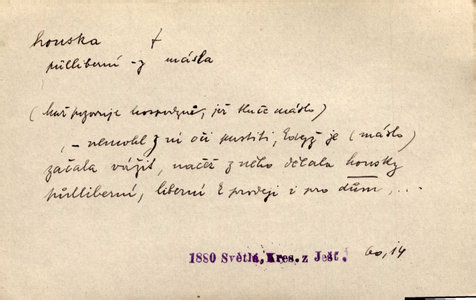 houska †
půlliberní – z másla
(host pozoruje hospodyně, jež tluče máslo)
, – nemohl z ní oči pustiti, když je (máslo)
začala vážit, načež z něho dělala housky
půlliberní, liberní k prodeji i pro dům, ...
1880 Světlá, Kres. z Ješť. 60, 14